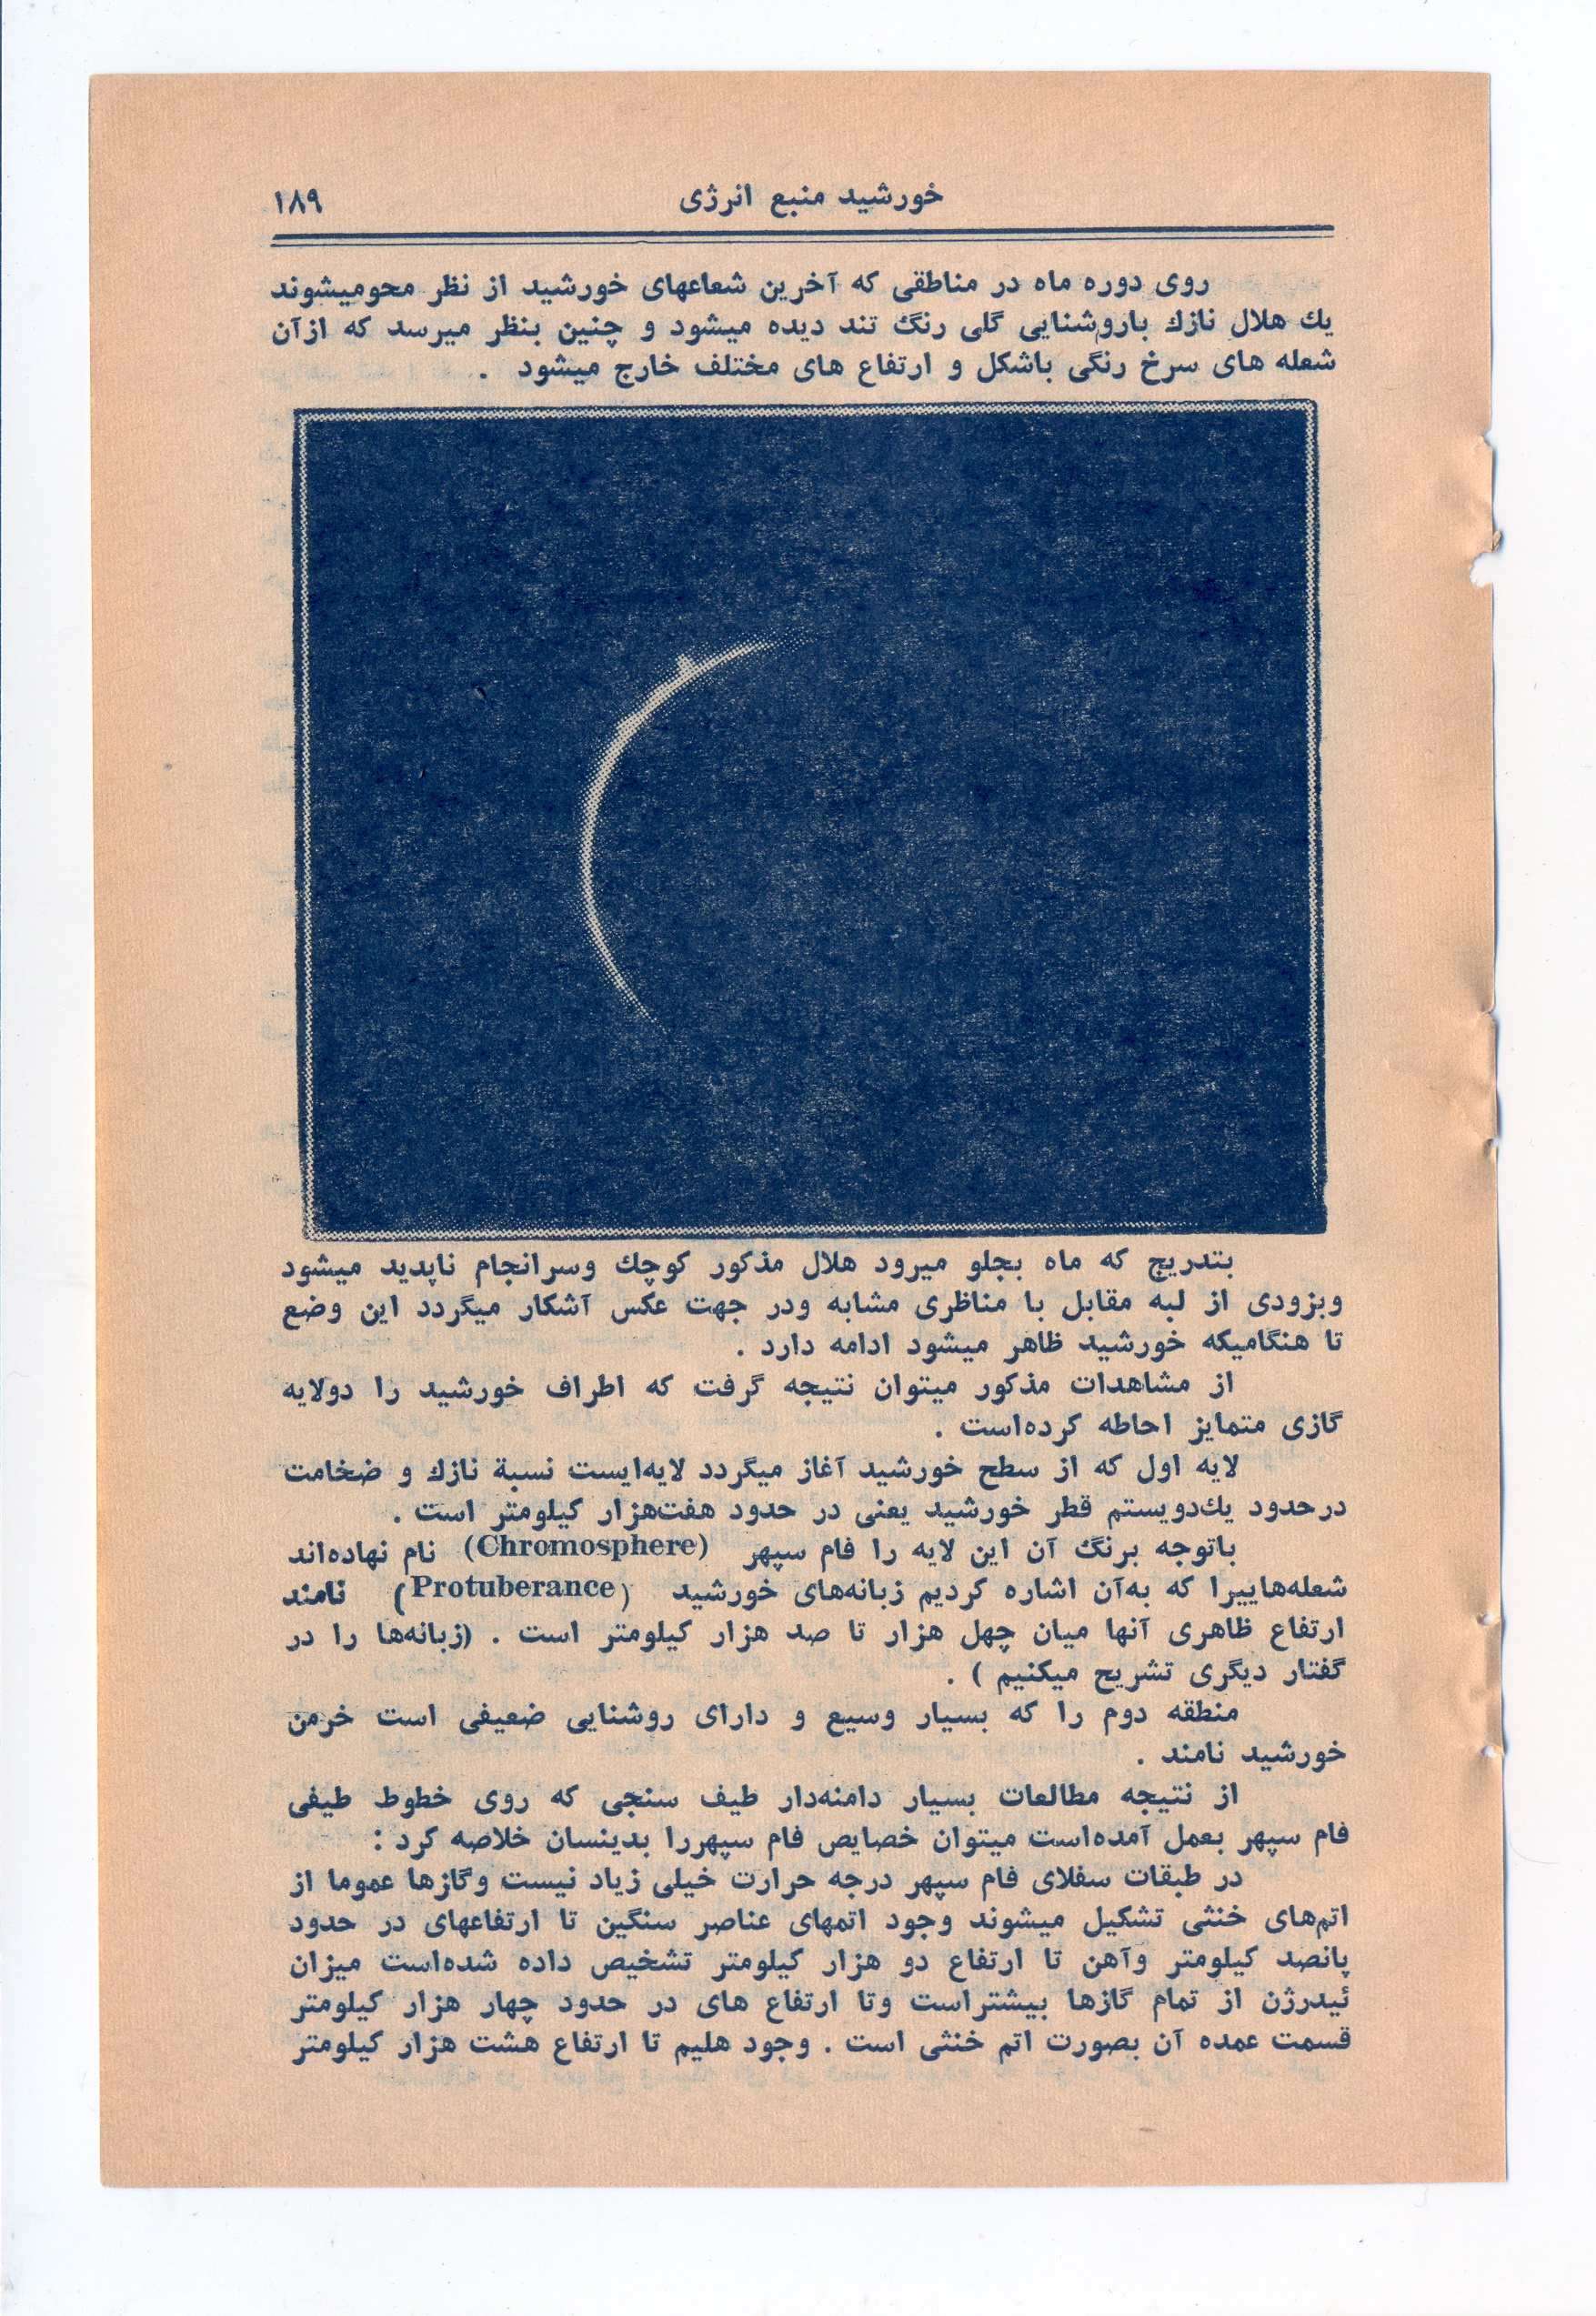 خورشید منبع انرژی ۱۸۹
روی دوره ماه در مناطقی که آخرین شعاعهای خورشید از نظر محومیشوند
یك هلال نازك باروشنایی گلی رنگ تند دیده میشود و چنین بنظر میرسد که ازآن
شعله های سرخ رنگی باشکل و ارتفاع های مختلف خارج میشود .
بتدریج که ماه بجلو میرود هلال مذکور کوچك وسرانجام ناپدید میشود
وبزودی از لبه مقابل با مناظری مشابه ودر جهت عکس آشکار میگردد این وضع
تا هنگامیکه خورشید ظاهر میشود ادامه دارد .
از مشاهدات مذکور میتوان نتیجه گرفت که اطراف خورشید را دولایه
گازی متمایز احاطه کرده‌است .
لایه اول که از سطح خورشید آغاز میگردد لایه‌ایست نسبة نازك و ضخامت
درحدود یك‌دویستم قطر خورشید یعنی در حدود هفت‌هزار کیلومتر است .
باتوجه برنگ آن این لایه را فام سپهر (Chromosphere) نام نهاده‌اند
شعله‌هاییرا که به‌آن اشاره کردیم زبانه‌های خورشید (Protuberance) نامند
ارتفاع ظاهری آنها میان چهل هزار تا صد هزار کیلومتر است . (زبانه‌ها را در
گفتار دیگری تشریح میکنیم ) .
منطقه دوم را که بسیار وسیع و دارای روشنایی ضعیفی است خرمن
خورشید نامند .
از نتیجه مطالعات بسیار دامنه‌دار طیف سنجی که روی خطوط طیفی
فام سپهر بعمل آمده‌است میتوان خصایص فام سپهررا بدینسان خلاصه کرد :
در طبقات سفلای فام سپهر درجه حرارت خیلی زیاد نیست وگازها عموما از
اتم‌های خنثی تشکیل میشوند وجود اتمهای عناصر سنگین تا ارتفاعهای در حدود
پانصد کیلومتر وآهن تا ارتفاع دو هزار کیلومتر تشخیص داده شده‌است میزان
ئیدرژن از تمام گازها بیشتراست وتا ارتفاع های در حدود چهار هزار کیلومتر
قسمت عمده آن بصورت اتم خنثی است . وجود هلیم تا ارتفاع هشت هزار کیلومتر